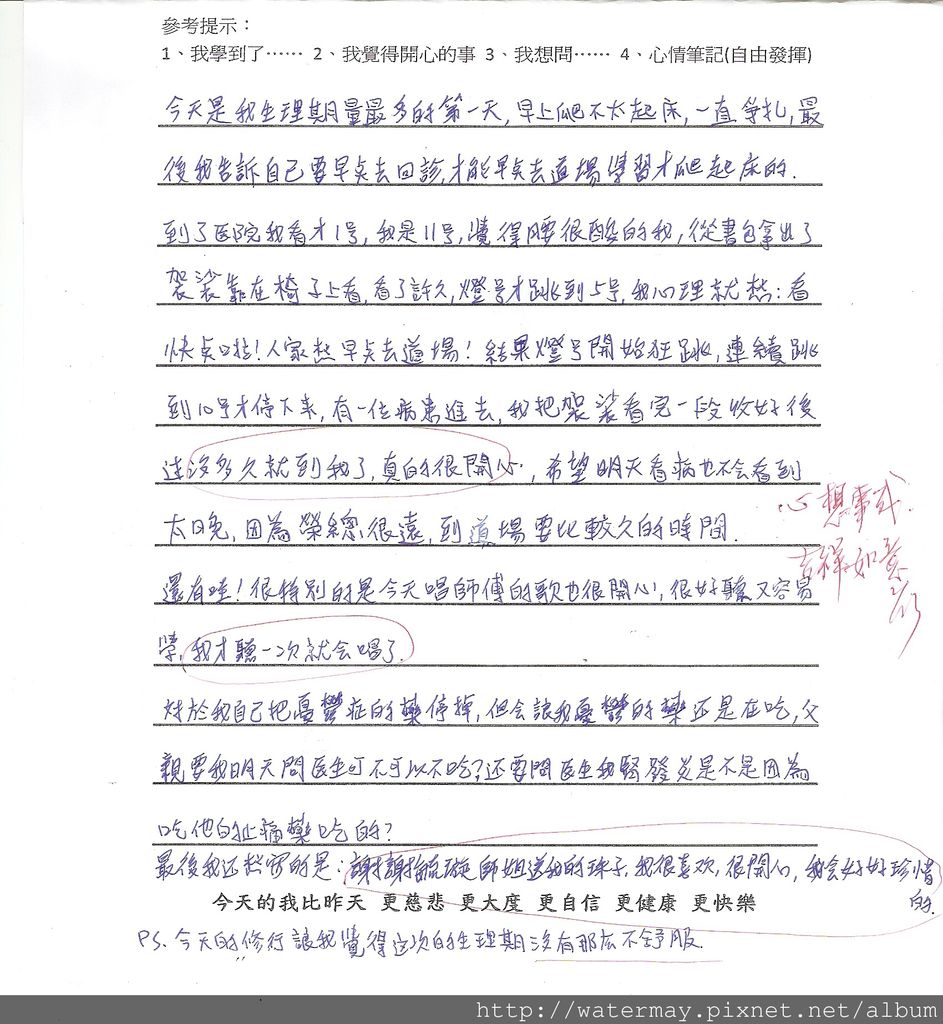 參考提示：
1、我學到了…… 2、我覺得開心的事 3、我想問…… 4、心情筆記(自由發揮)
今天是我生理期量最多的第一天，早上爬不太起床，一直爭扎，最
後我告訴自己要早点去回診，才能早点去道場學習才爬起床的．
到了医院我看才1号，我是11号，覺得腰很酸的我，從書包拿出了
袈裟靠在椅子上看，看了許久，燈号才跳到5号，我心理就想：看
快点啦！人家想早点去道場！結果燈号開始狂跳，連續跳
到10号才停下來，有一位病患進去，我把袈裟看完一段收好後
沒多久就到我了，真的很開心，希望明天看病也不会看到
太晚，因為榮總很遠，到道場要比較久的時間．
還有哇！很特別的是今天唱師傅的歌也很開心，很好聽又容易
學，我才聽一次就会唱了．
対於我自己把憂鬱症的藥停掉，但会讓我憂鬱的藥还是在吃，父
親要我明天問医生可不可以不吃？还要問医生我腎發炎是不是因為
吃他的止痛藥吃的？
最後我还想寫的是：謝謝 師姐送我的珠子，我很喜欢，很開心，我会好好珍惜
的．
心想事成．
吉祥如意
今天的我比昨天 更慈悲 更大度 更自信 更健康 更快樂
PS．今天的修行讓我覺得这次的生理期沒有那広不舒服．
http://watermay.pixnet.net/album